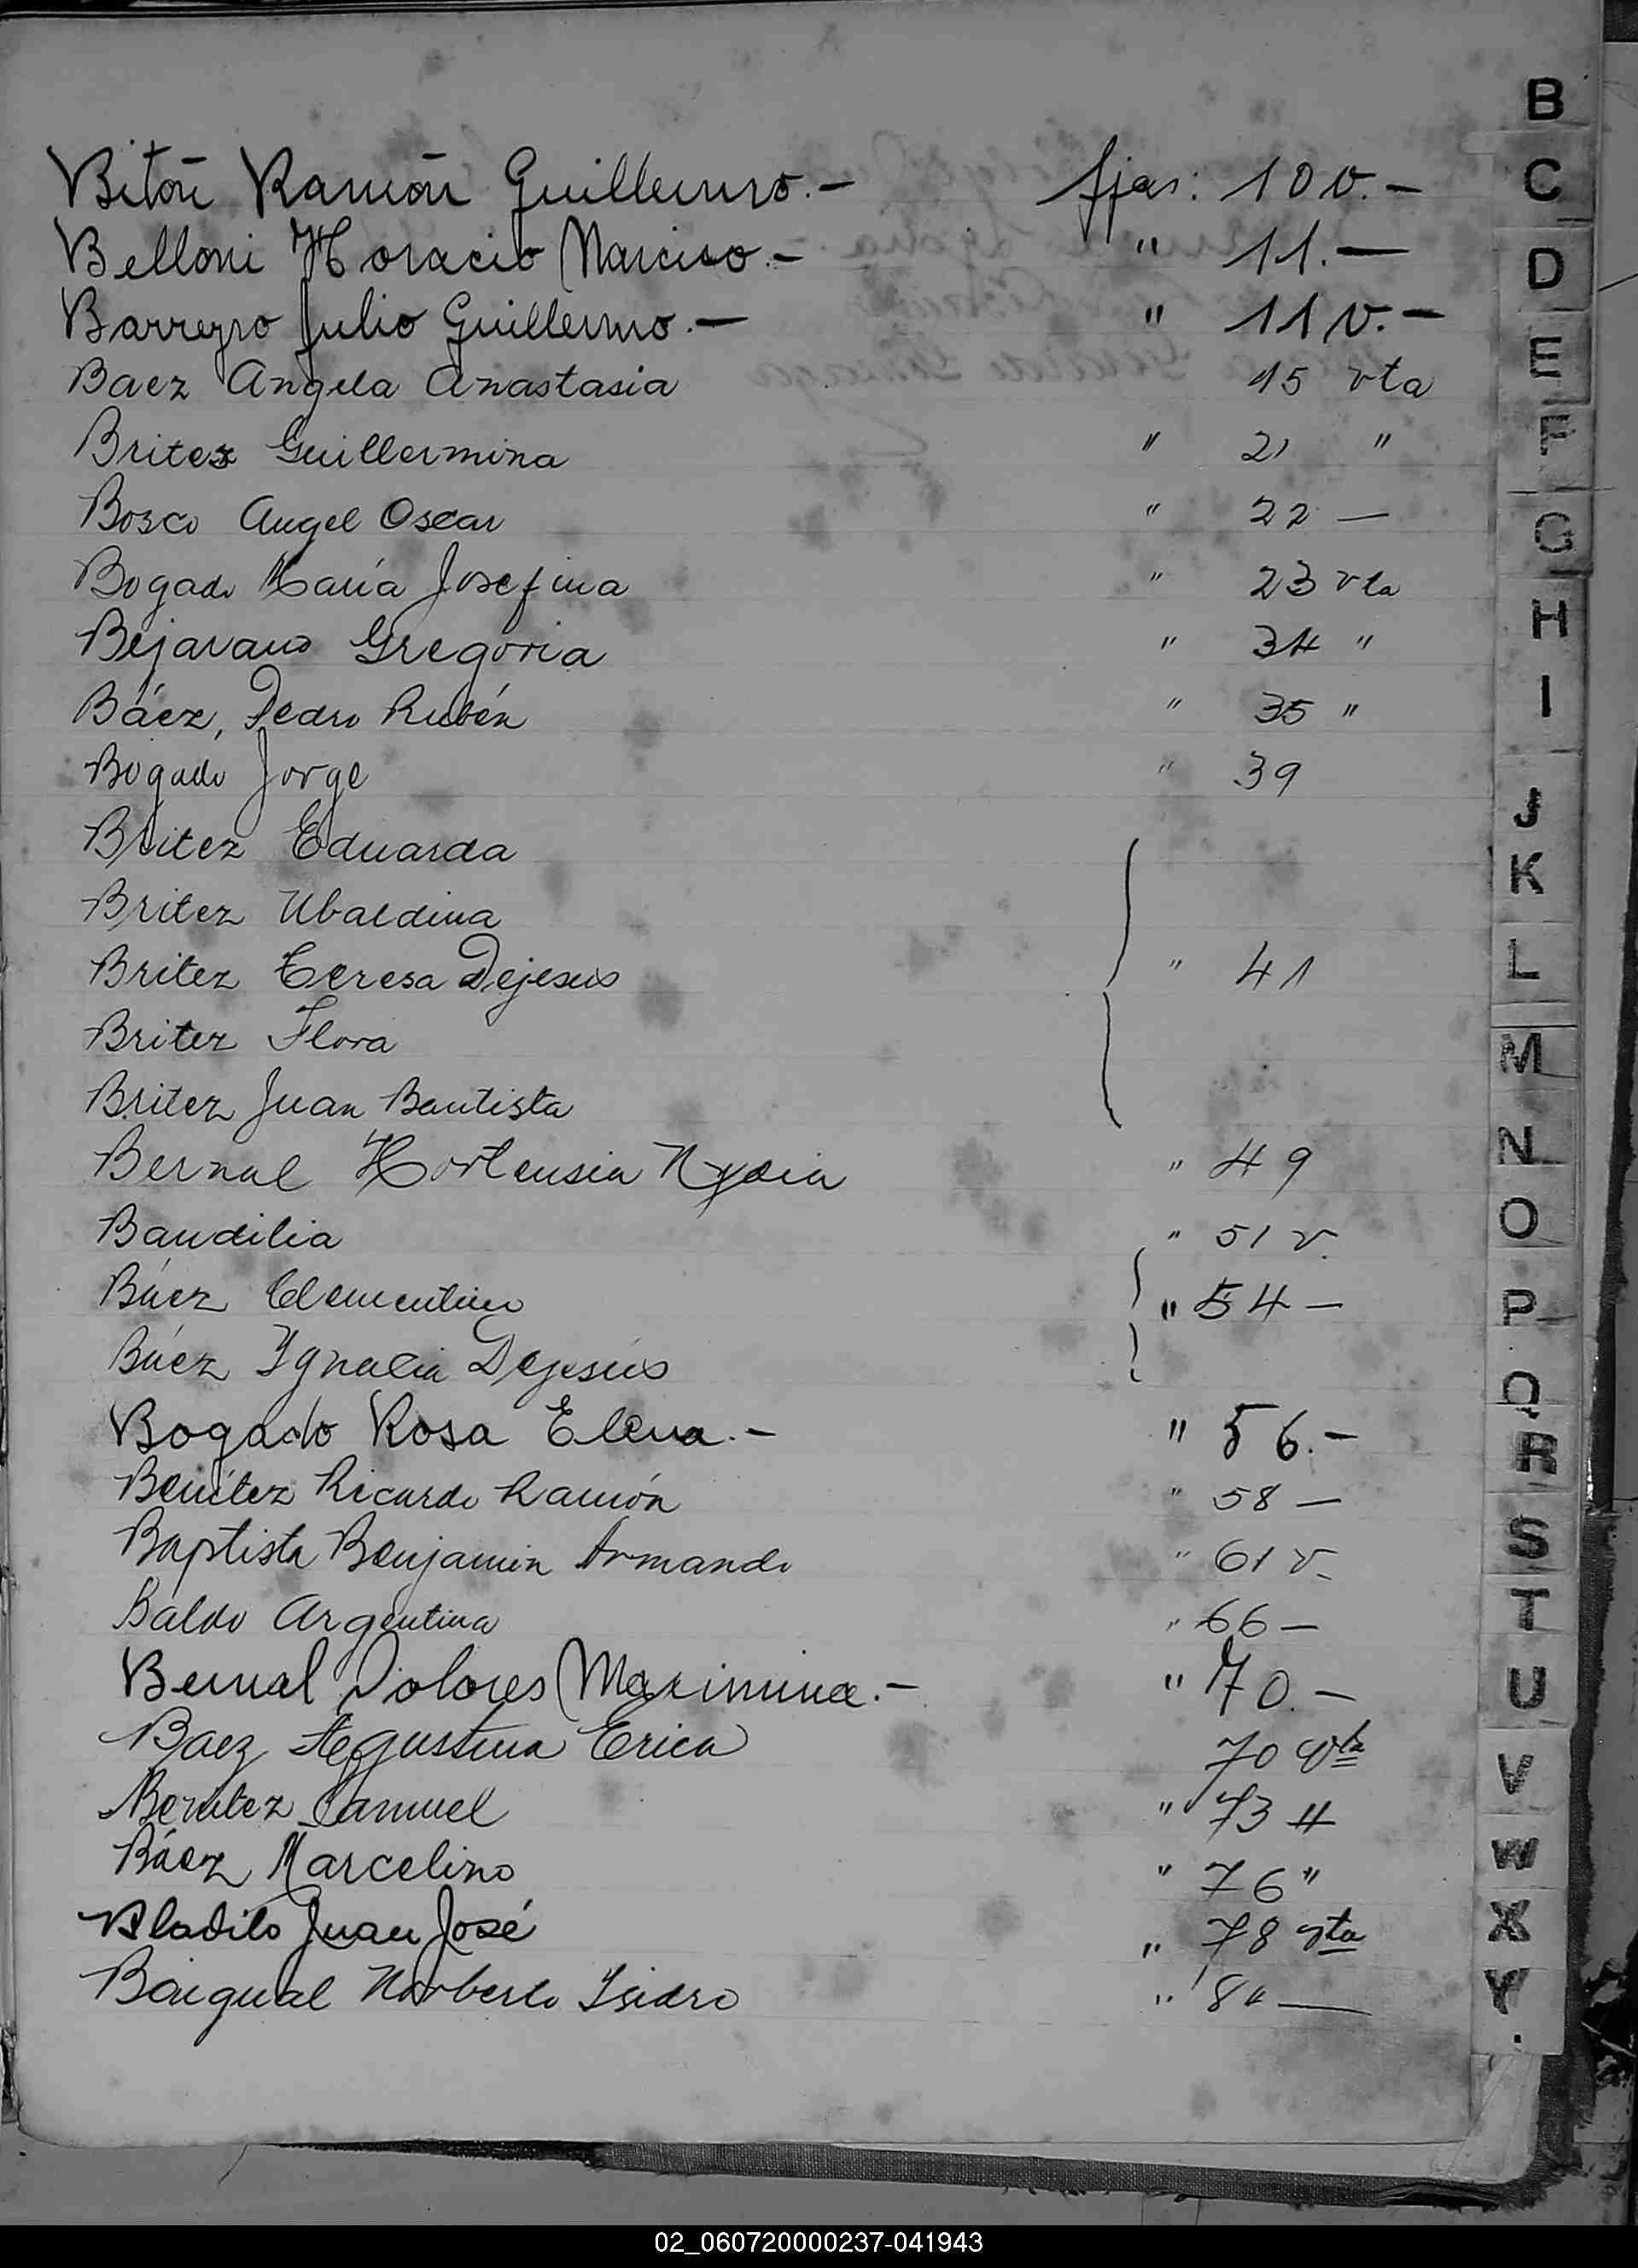 Bitón Ramón Guillermo.- fjas: 10 v.-
Belloni Horacio Narciso.- " 11.-
Barreyro Julio Guillermo.- " 11 v.-
Baez Angela Anastasia 15 vta
Britez Guillermina " 21 "
Bosco Angel Oscar " 22 -
Bogado María Josefina " 23 vta
Bejarano Gregoria " 34 "
Báez, Pedro Rubén " 35 "
Bogado Jorge " 39
Britez Eduarda
Britez Ubaldina
Britez Teresa Dejesus " 41
Britez Flora
Britez Juan Bautista
Bernal Hortensia Nydia " 49
Baudilia " 51 v.
Báez Clementino " 54 -
Báez Ignacia Dejesús
Bogado Rosa Elena.- " 56.-
Benítez Ricardo Ramón " 58 -
Baptista Benjamin Armando " 61 v-
Baldo Argentina " 66 -
Bernal Dolores Maximina.- " 70.-
Baez Agustina Erica 70 vta
Benitez Samuel " 73 "
Báez Marcelino " 76 "
Bladilo Juan José " 78 vta
Baigual Norberto Isidro "
B
C
D
E
F
G
H
I
J
K
L
M
N
O
P
Q
R
S
T
U
V
W
X
Y
02_060720000237-041943